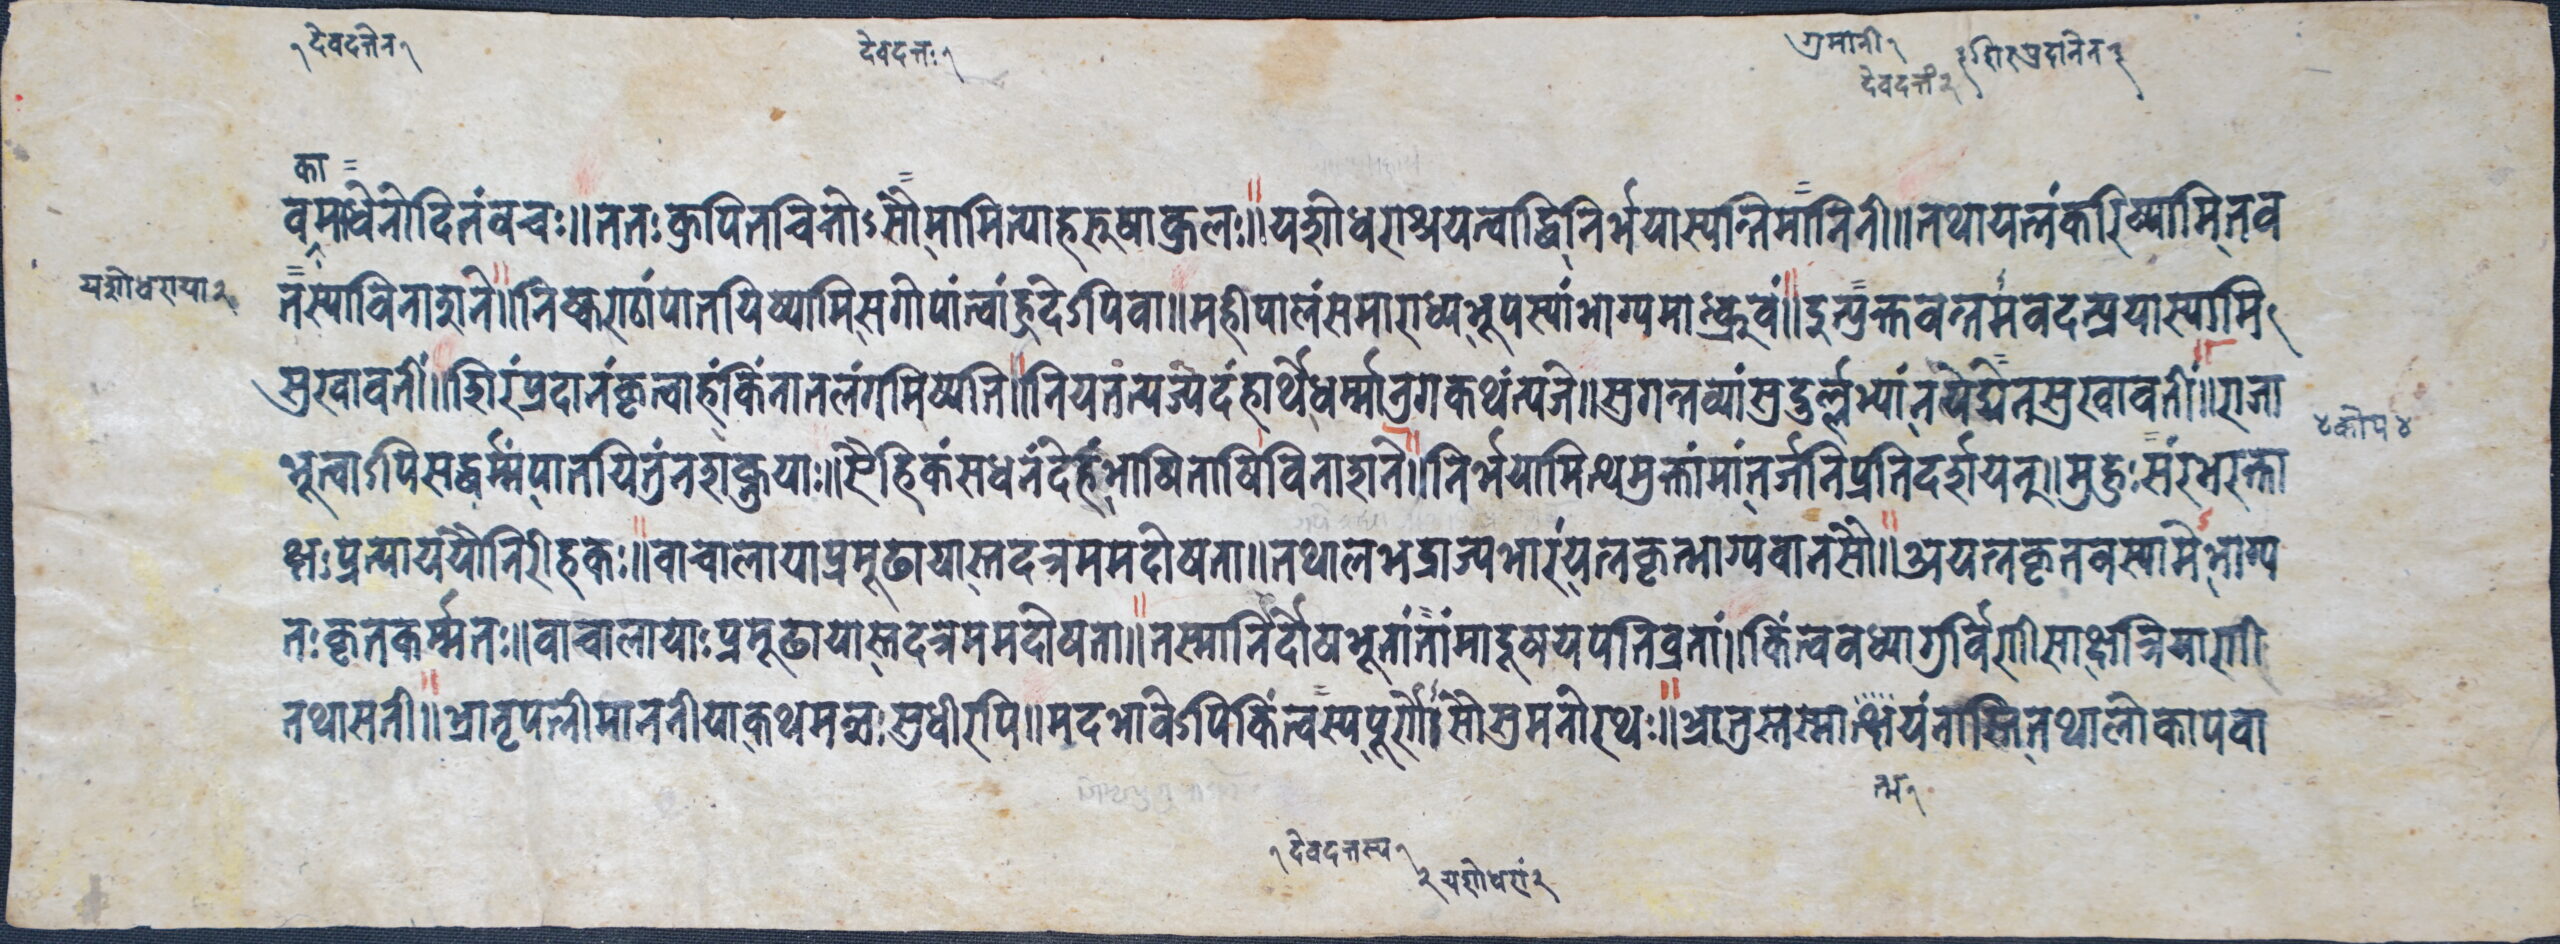 १देवदत्तेन१
देवदत्तः१
ग्रमानी१
देवदत्तं२
३शिरप्रदानेन३
का
वमाधेनोदितंवचः॥ततःक्रपितचित्तोऽसौमामित्याहरुषाकुलः॥यशोधराश्रयत्वाद्धिनिर्भयास्यन्तिमानिनी॥तथायत्नंकरिष्यामितव
यशोधराया२
नस्याविनाशने॥निष्कराठांपातयिष्यामिसगोपांत्वांह्रदेऽपिवा॥महीपालंसमाराध्यभूपस्यांभाग्यमान्ध्रुवं॥इत्युक्तवन्तमवदत्प्रयास्यामि
सुखावतीं॥शिरंप्रदानंकृत्वाहंकिंनातलंगमिष्यति॥नियतंत्यज्यदेहार्थेधर्म्मानुगकथंत्यजे॥सुगन्तव्यांसुदुर्ल्लभ्यांनयेद्येनसुखावतीं॥राजा
४कोप४
भूत्वाऽपिसद्धर्म्मंपातयितुंनशक्नुयाः॥ऐहिकंसधनंदेहंभाषितोषिविनाशने॥निर्भयामित्थमुक्तांमांतर्जनिप्रतिदर्शयन्॥मुहुःसंरभरक्ता
क्षःप्रत्यायययौनिरीहकः॥वाचालायाप्रमूढायास्तदत्रममदोषता॥तथालभद्राज्यभारंयत्नकृत्भाग्यवानसौ॥अयत्नकृतवस्यामेभाग्य
तःकृतकर्म्मतः॥वाचालायाःप्रमूढायास्तदत्रममदोषता॥तस्मानिर्दोषभूतांतांमादूषयपतिव्रतां॥किंत्ववध्यागुर्विणीसाक्षत्रियाणी
तथासती॥भ्रातृपत्नीमाननीयाकथमन्द्यःसुधीरपि॥मदभावेऽपिकिंत्वस्यपूर्णोसौसुमनोरथः॥भ्रातुस्तस्मात्क्षयंनास्तितथालोकापवा
र्त्म१
१देवदत्तस्य१
२यशोधरां२